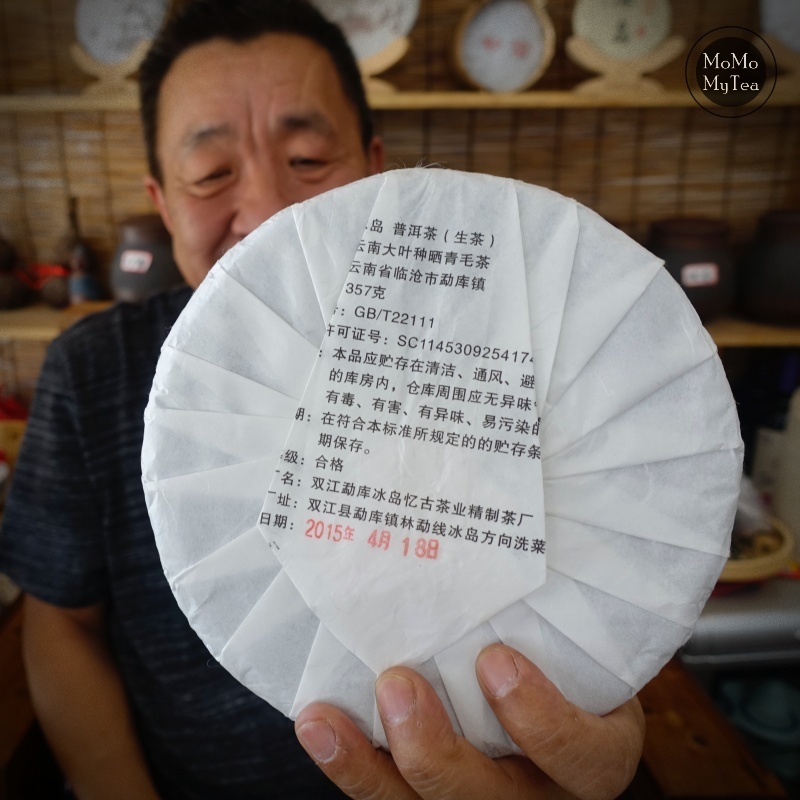 MoMo
MyTea
岛 普洱茶（生茶）
云南大叶种晒青毛茶
云南省临沧市勐库镇
357克
：GB/T22111
许可证号：SC1145309254174
：本品应贮存在清洁、通风、避
的库房内，仓库周围应无异味
有毒、有害、有异味、易污染的
期：在符合本标准所规定的的贮存条
期保存。
级：合格
名：双江勐库冰岛忆古茶业精制茶厂
址：双江县勐库镇林勐线冰岛方向洗菜
日期：2015年 4月 18日